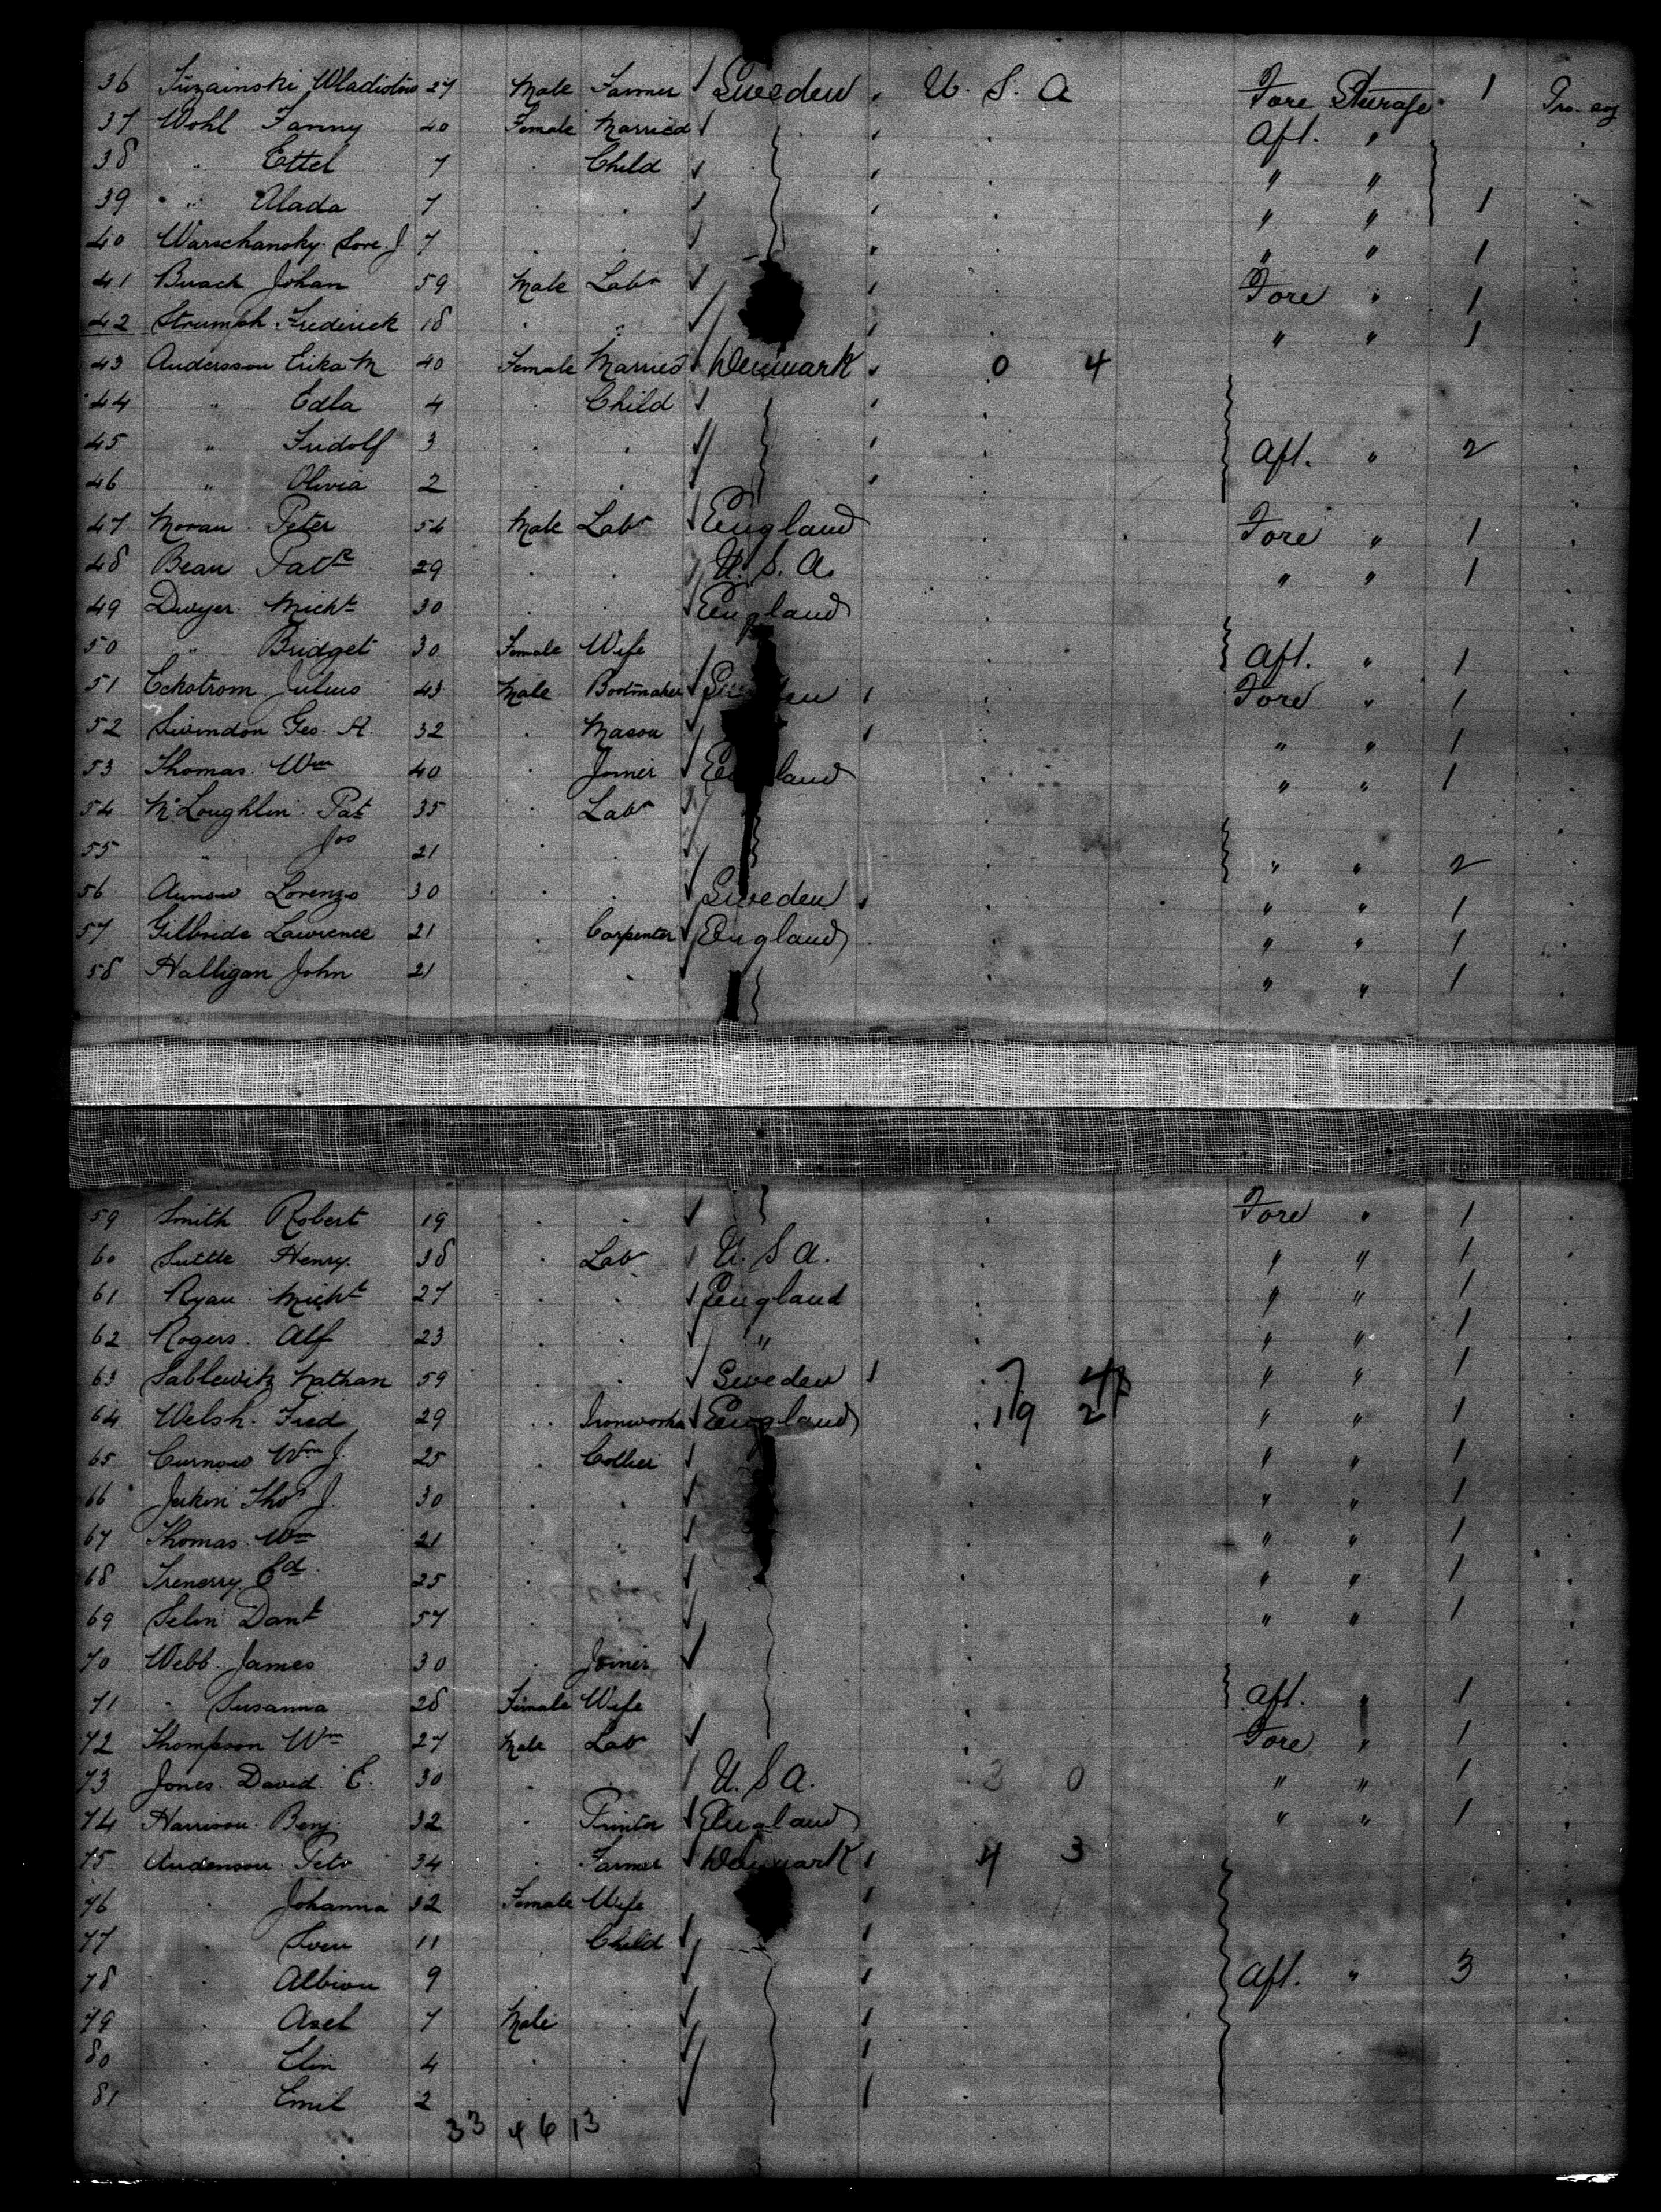 36 Wladislaw 27 Male Farmer Sweden U. S. A Fore Steerage 1
37 Wohl Fanny 40 Female Married Aft. "
38 " Ettel 7 . Child " "
39 " 7 . . " " 1
40 Warschansky 7 . . " " 1
41 Johan 59 Male Labr Fore " 1
42 Strumph Frederick 18 . . " " 1
43 Andersson Erika M 40 Female Married Denmark 0 4
44 " Edla 4 . Child
45 " Fridolf 3 . . Aft. " 2
46 " Olivia 2 . .
47 Moran Peter 54 Male Labr England Fore " 1
48 Bean Patk 29 . . U. S. A. " " 1
49 Dwyer Michl 30 . . England
50 " Bridget 30 Female Wife Aft. " 1
51 Eckstrom Julius 43 Male Bootmaker Fore " 1
52 Swindon Geo. H. 32 . Mason " " 1
53 Thomas Wm 40 . Joiner " " 1
54 McLoughlin Pat 35 . Labr
55 " Jos 21 . . " " 2
56 Lorenzo 30 . . Sweden " " 1
57 Gilbride Lawrence 21 . Carpenter England " " 1
58 Halligan John 21 . . " " 1
59 Smith Robert 19 . . Fore " 1
60 Suttle Henry. 38 . Labr U. S A. " " 1
61 Ryan Michl 27 . . England " " 1
62 Rogers Alf 23 . . " " " 1
63 Sablewitz Nathan 59 . . Sweden 7 " " 1
64 Welsh. Fred 29 . England 19 2 " " 1
65 Curnow Wm J. 25 . Collier " " 1
66 Thos J. 30 . . " " 1
67 Thomas Wm 21 . . " " 1
68 Trenerry Ed 25 . . " " 1
69 Danl 57 . . " " 1
70 Webb James 30 . Joiner
71 " Susanna 28 Female Wife Aft. " 1
72 Thompson Wm 27 Male Labr Fore " 1
73 Jones David E. 30 . . U. S A. 3 0 " " 1
74 Harrison Benj. 32 . Printer England " " 1
75 Anderson 34 . Farmer Denmark 4 3
76 " Johanna 32 Female Wife
77 " Sven 11 . Child
78 " Albion 9 . . Aft. " 3
79 " Axel 7 Male .
80 " Elin 4 . .
81 " Emil 2 . .
33 46 13